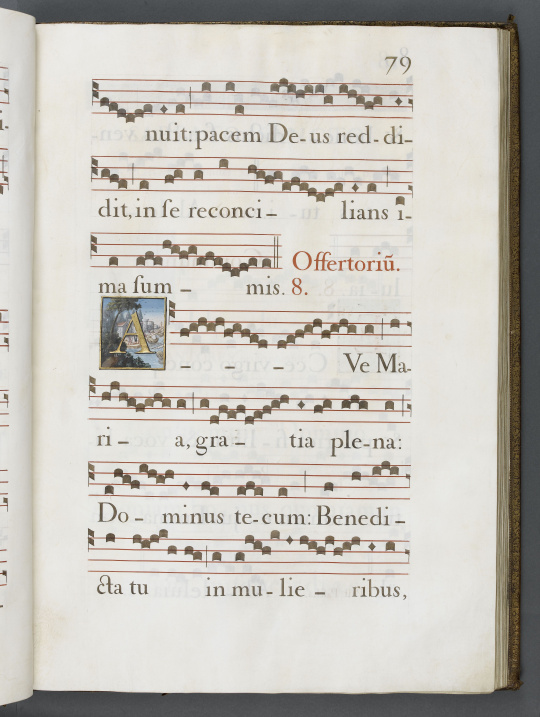 79
nuit: pacem De-us red-di-
dit, in ſe reconci- lians i-
Offertoriū.
ma ſum- mis. 8.
A - - - Ve Ma-
ri- a, gra- tia ple-na:
Do- minus te-cum: Benedi-
cta tu in mu-lie- ribus,